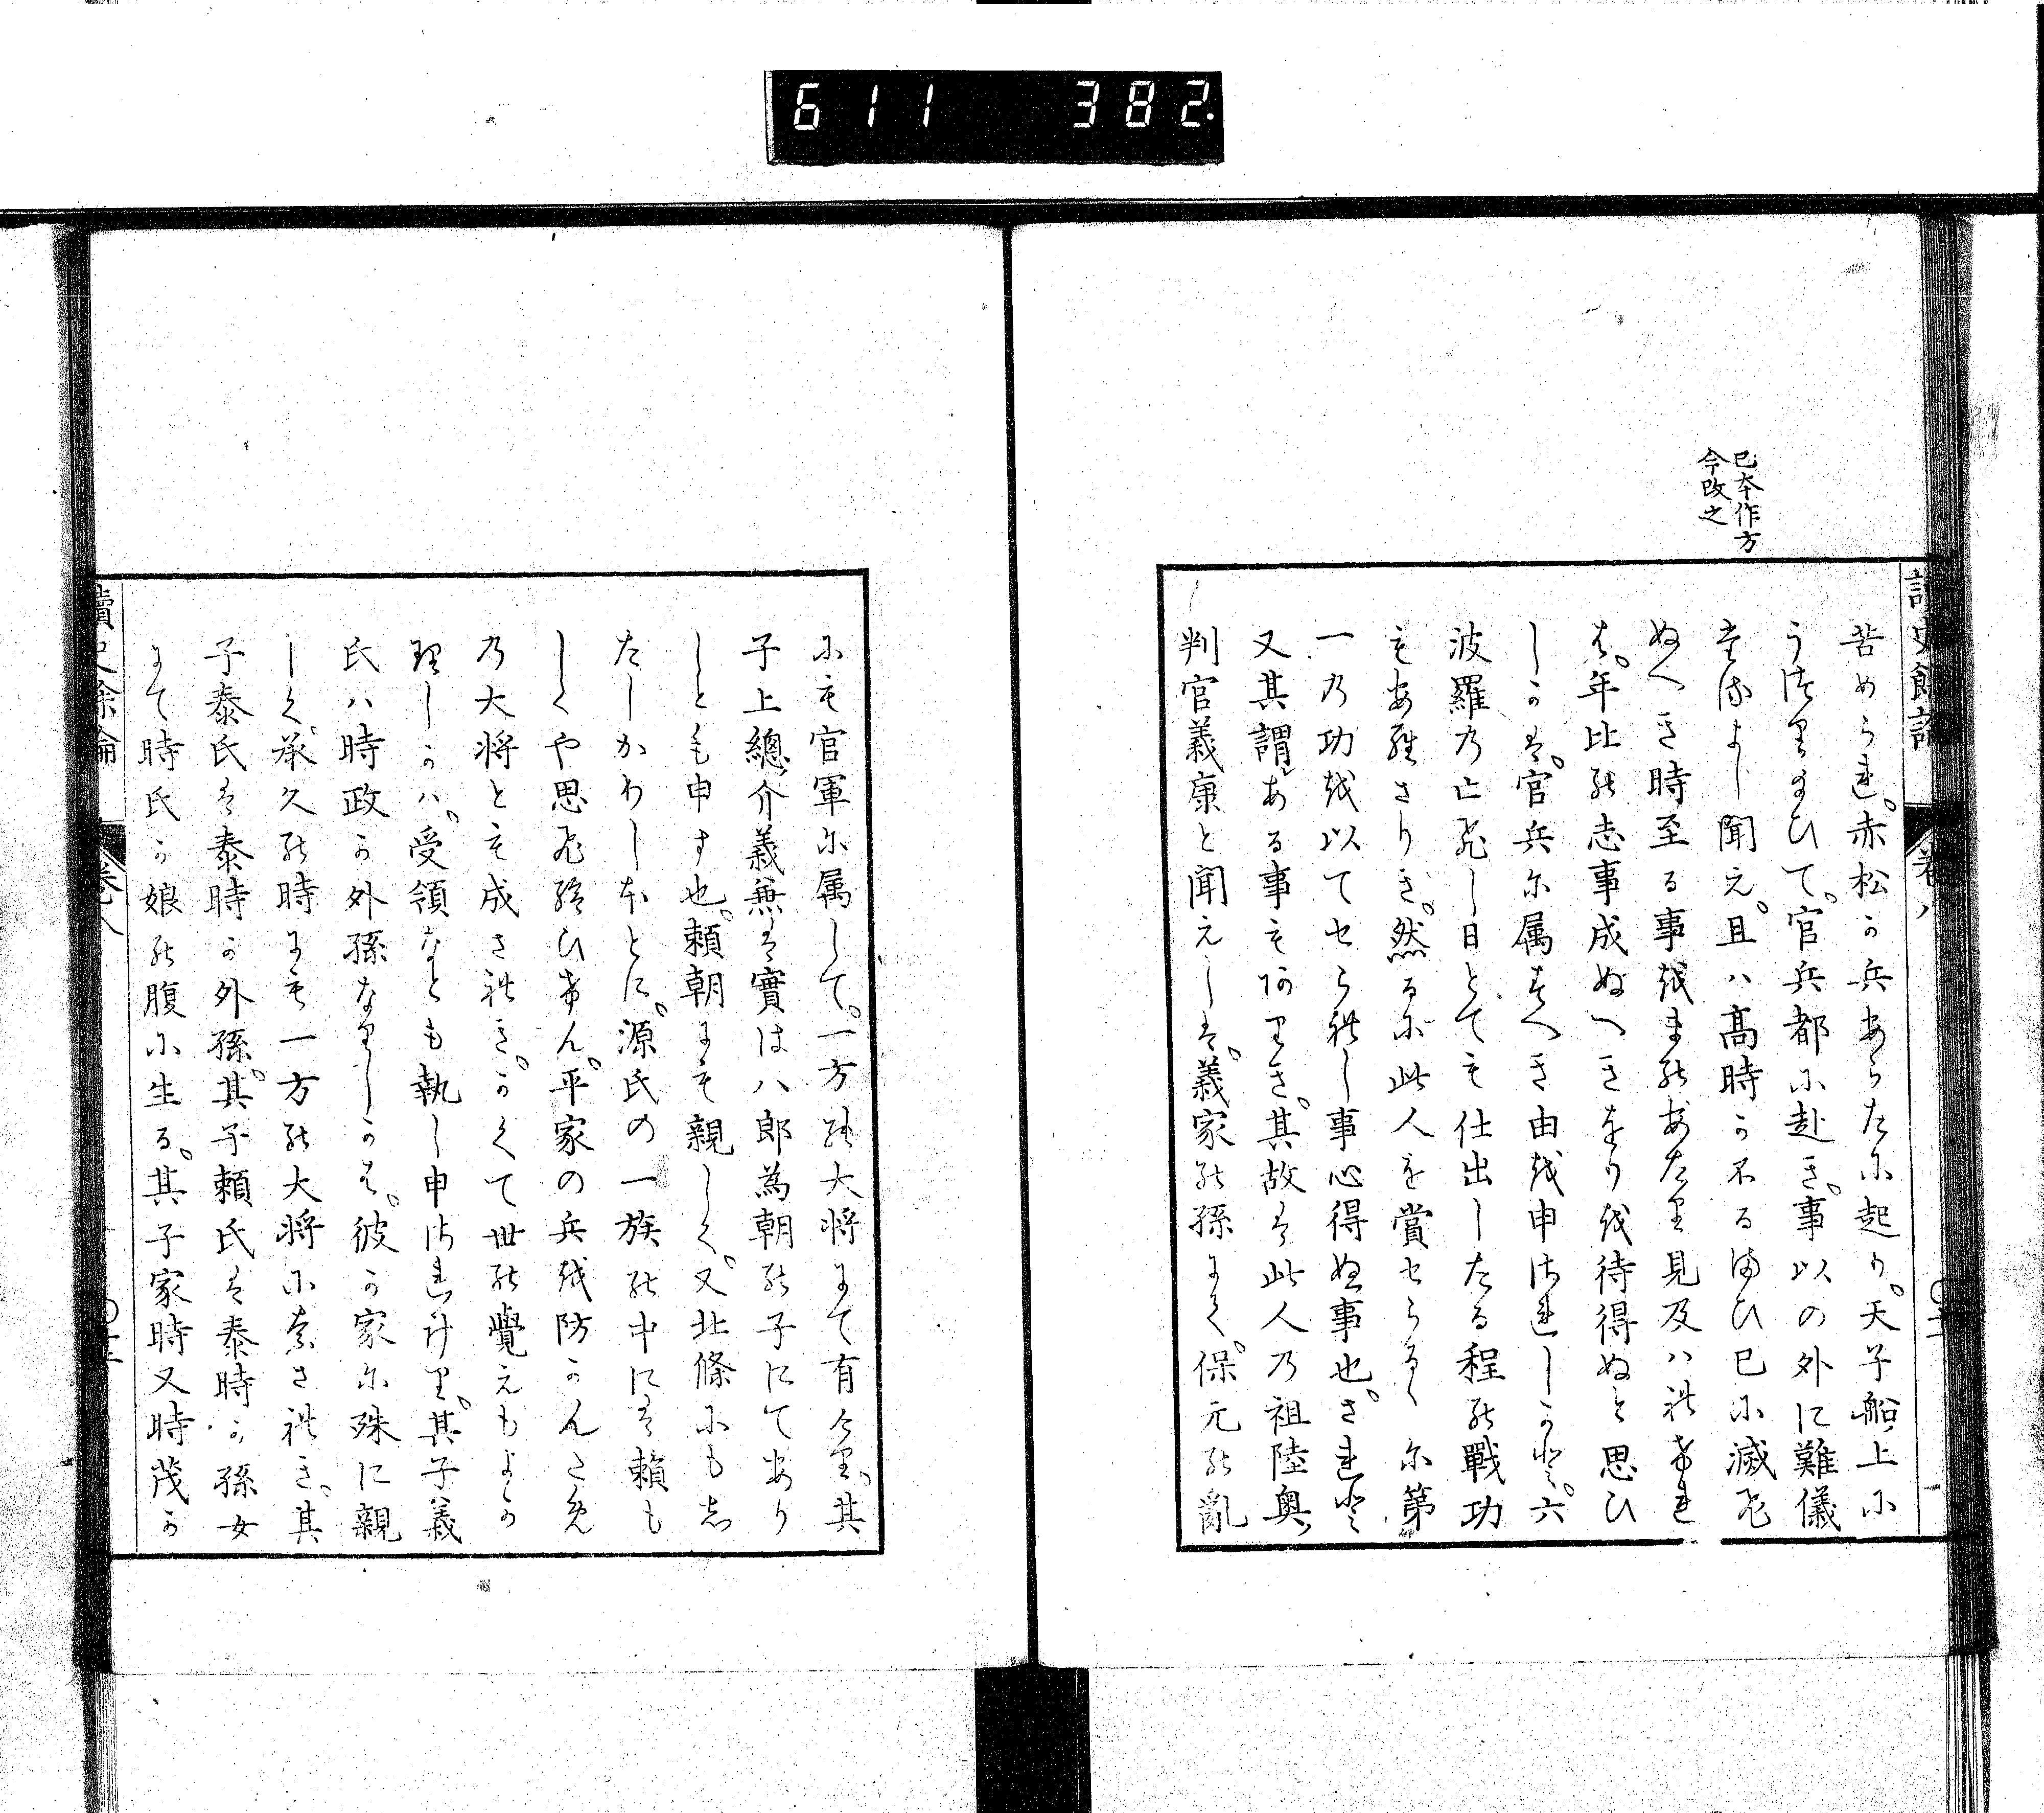 611 382.
已本作方
今改之
讀史餘論 巻八
苦められ。赤松か兵あらたに起り。天子船上に
うつり給ひて。官兵都に赴き。事以の外に難儀
するよし聞え。且ハ高時か不るまひ已に滅び
ぬへき時至る事をまのあたり見及ハれけれ
は。年比の志事成ぬへきをりを待得ぬと思ひ
しかは。官兵に属すへき由を申されしかど。六
波羅の亡びし日とても仕出したる程の戰功
もあらさりき。然るに此人を賞せらるゝに第
一の功を以てせられし事心得ぬ事也。されど
又其謂ある事もありき。其故は此人の祖陸奥
判官義康と聞えしは。義家の孫にて。保元の亂
にも官軍に属して。一方の大将にて有けり。其
子上總介義兼は實は八郎為朝の子にてあり
しとも申す也。頼朝にも親しく。又北條にもし
たしかりしほとに。源氏の一族の中には頼も
しくや思ひ給ひけん。平家の兵を防かんため
の大将とも成されき。かくて世の覺えもよか
りしかハ。受領なとも執し申されけり。其子義
氏ハ時政か外孫なりしかは。彼か家に殊に親
しく。承久の時にも一方の大将になされき。其
子泰氏は泰時か外孫。其子頼氏は泰時か孫女
にて時氏か娘の腹に生る。其子家時又時茂か
讀史餘論 巻八